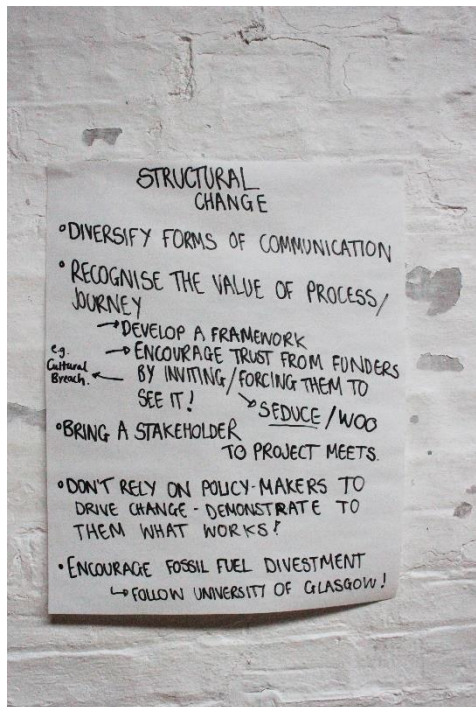 STRUCTURAL
CHANGE
• DIVERSIFY FORMS OF COMMUNICATION
• RECOGNISE THE VALUE OF PROCESS/
JOURNEY
→ DEVELOP A FRAMEWORK
→ ENCOURAGE TRUST FROM FUNDERS
BY INVITING/FORCING THEM TO
SEE IT!
e.g.
Cultural
Breach.
↘ SEDUCE/WOO
• BRING A STAKEHOLDER
TO PROJECT MEETS.
• DON'T RELY ON POLICY-MAKERS TO
DRIVE CHANGE - DEMONSTRATE TO
THEM WHAT WORKS!
• ENCOURAGE FOSSIL FUEL DIVESTMENT
↳ FOLLOW UNIVERSITY OF GLASGOW!